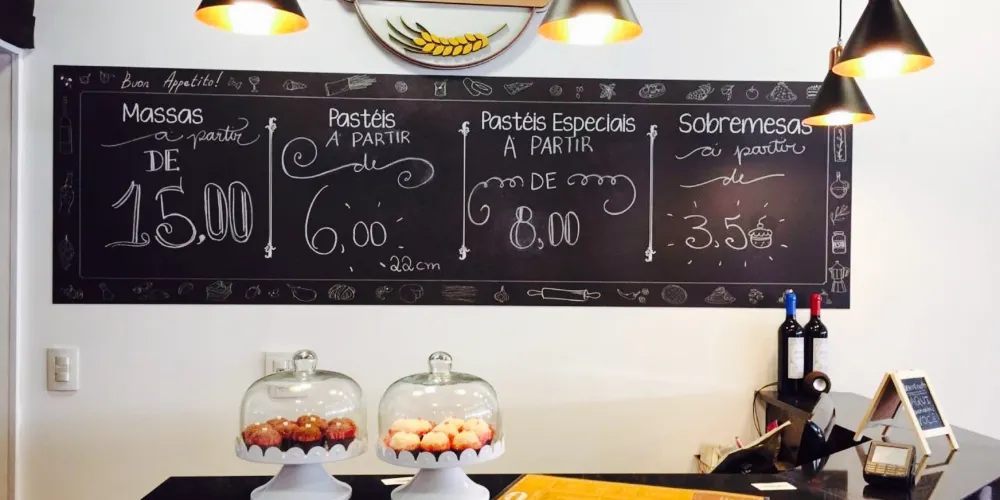 Buon Appetito!
Massas
a partir
DE
15,00
Pastéis
A PARTIR
de
6,00
22cm
Pastéis Especiais
A PARTIR
DE
8,00
Sobremesas
a partir
de
3,50
VOCÊ